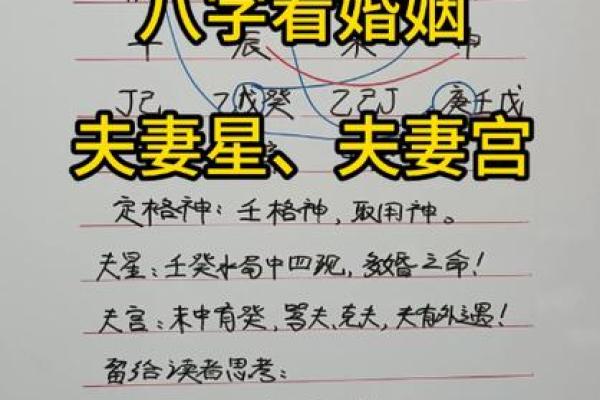 八字看婚姻
午 辰 未 申
丁己 乙戊癸 乙己丁 庚壬戊
夫妻星、夫妻宫
定格神：壬格神，取用神。
夫星：壬癸水局中四现，多婚之命！
夫宫：未中有癸，骂夫、克夫，夫有外遇！
留给读者思考：